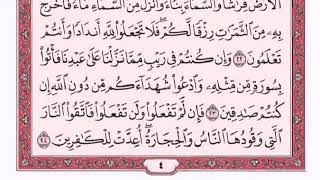 الْأَرْضَ فِرَاشًا وَالسَّمَاءَ بِنَاءً وَأَنزَلَ مِنَ السَّمَاءِ مَاءً فَأَخْرَجَ
بِهِۦ مِنَ الثَّمَرَاتِ رِزْقًا لَّكُمْ ۖ فَلَا تَجْعَلُوا لِلَّهِ أَندَادًا وَأَنتُمْ
تَعْلَمُونَ ﴿٢٢﴾ وَإِن كُنتُمْ فِي رَيْبٍ مِّمَّا نَزَّلْنَا عَلَىٰ عَبْدِنَا فَأْتُوا
بِسُورَةٍ مِّن مِّثْلِهِۦ وَادْعُوا شُهَدَاءَكُم مِّن دُونِ اللَّهِ إِن
كُنتُمْ صَادِقِينَ ﴿٢٣﴾ فَإِن لَّمْ تَفْعَلُوا وَلَن تَفْعَلُوا فَاتَّقُوا النَّارَ
الَّتِي وَقُودُهَا النَّاسُ وَالْحِجَارَةُ ۖ أُعِدَّتْ لِلْكَافِرِينَ ﴿٢٤﴾
٤